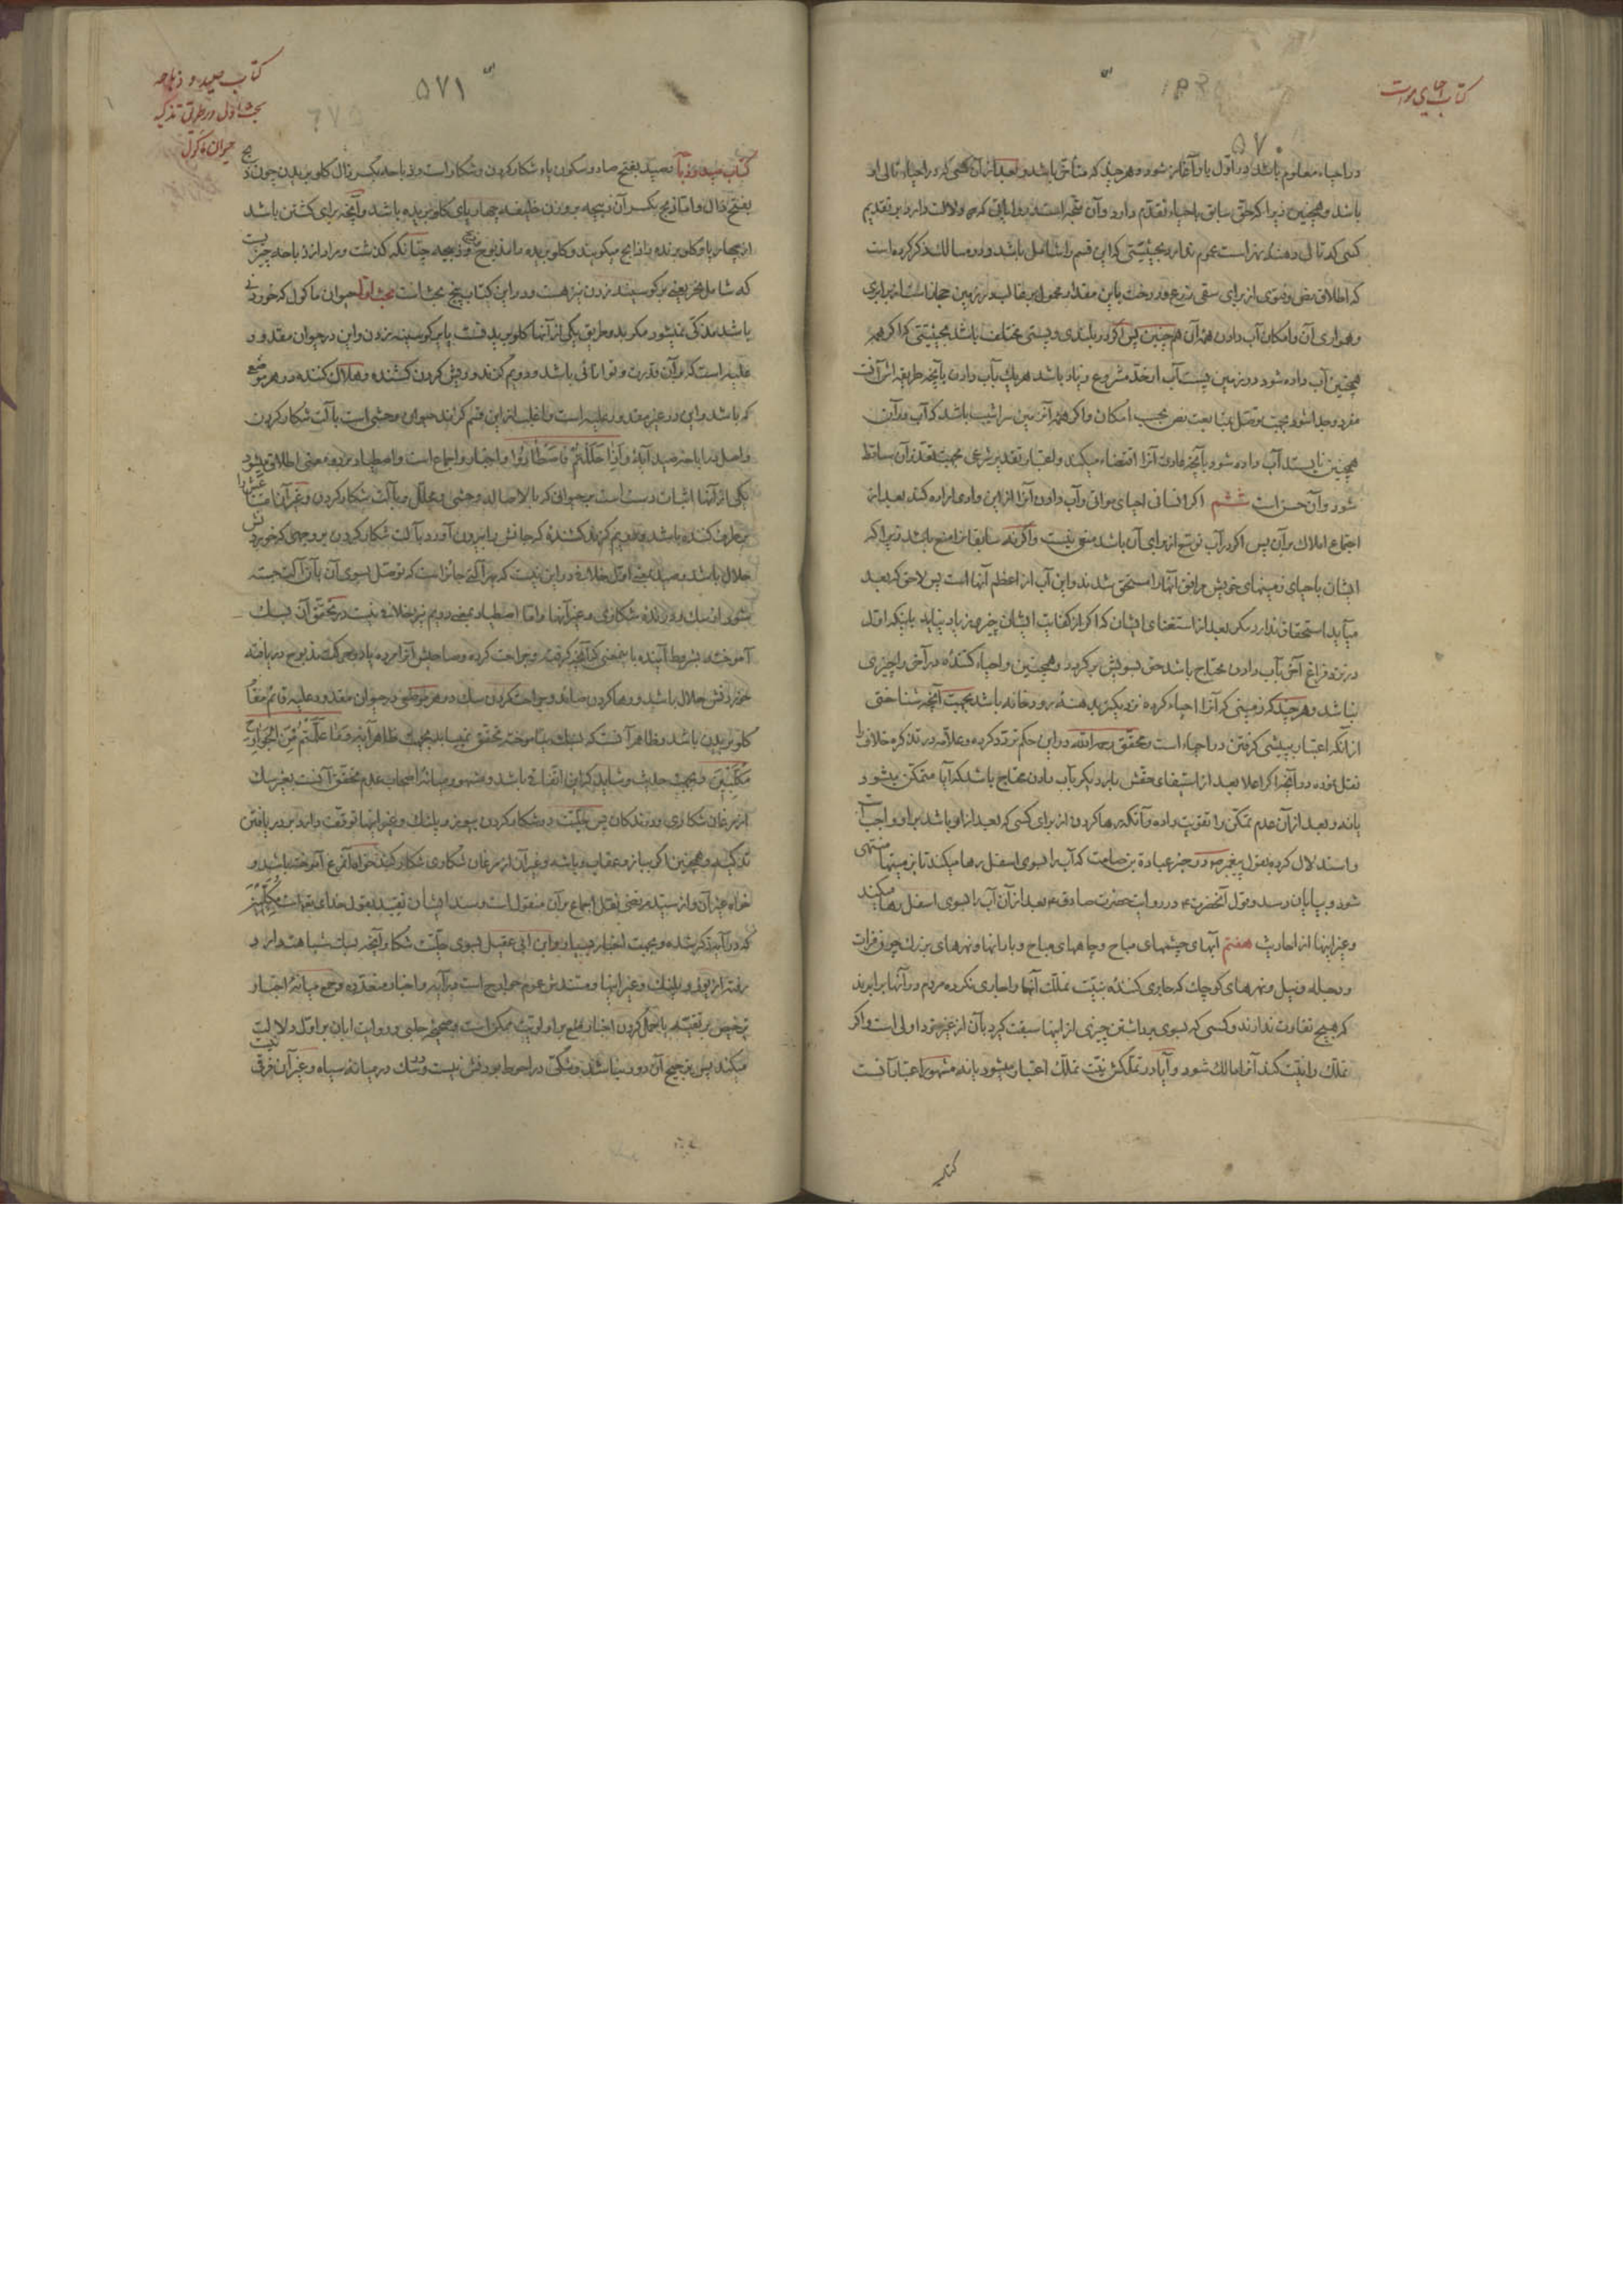 کتاب احیای موات
۵۷۰
در احیاء معلوم باشد در اول یا و آغاز شود و هر چند که متأخر باشد و بعد از آن کسی که در احیاء تالی او
باشد و همچنین زیرا که حق سابق باحیاء تقدم دارد و آن متجه است و روایاتی که دلالت دارد بر تقدیم
کسی که تالی دهنه نهر است عموم ندارد بحیثیتی که این قسم را شامل باشد و در مسالک ذکر کرده است
که اطلاق نص و فتوی از برای سقی زرع و درخت باین مقدار محمول بر غالب در زمین حجاز است از برابری
و همواری آن و امکان آب دادن همه آن همچنین پس اگر در بلندی و پستی مختلف باشد بحیثیتی که اگر همه
همچنین آب داده شود در زمین پست آب از حد مشروع زیاد باشد هر یک بآب دادن بآنچه طریقه اش آنست
مفرد و جدا شود بجهت توصل بمتابعت نص بحسب امکان و اگر همه آن زمین سراشیب باشد که آب در آن
همچنین نایستد آب داده شود بآنچه عادت آنرا اقتضاء میکند و اعتبار تقدیر شرعی بجهت تعذر آن ساقط
شود و آن حسن است ششم اگر انسانی احیای مواتی و آب دادن آنرا از این وادی اراده کند بعد از
اجتماع املاک بر آن پس اگر در آب توسع از برای آن باشد منعی نیست و اگر نه سابقانرا منع باشد زیرا که
ایشان باحیای زمینهای خویش مرافق آنها را مستحق شدند و این آب از اعظم آنها است پس لاحق که بعد
میآید استحقاق ندارد مگر بعد از استغنای ایشان که اگر از کفایت ایشان چیزی زیاد نیاید یا اینکه اول
در نزد فراغ آخر بآب دادن محتاج باشد حق بسویش برگردد و همچنین و احیاء کننده در آخر را چیزی
نباشد و هر چند که زمینی که آنرا احیاء کرده نزدیکتر بدهنه رودخانه باشد بجهت آنچه شناختی
از آنکه اعتبار بپیشی گرفتن در احیاء است و محقق رحمه الله در این حکم تردد کرده و علامه در تذکره خلاف را
نقل نموده در آنچه اگر اعلا بعد از استیفای حقش بار دیگر بآب دادن محتاج باشد که آیا متمکن میشود
یا نه و بعد از آن عدم تمکن را تقویت داده و آنکه رها کردن از برای کسی که بعد از او باشد بر او واجب است
و استدلال کرده بقول پیغمبر ص در خبر عبادة بن صامت که آب را بسوی اسفل رها میکند تا زمینها منتهی
شود و بپایان رسد و بقول آنحضرت در روایت حضرت صادق بعد از آن آب را بسوی اسفل رها میکند
و غیر اینها از احادیث هفتم آبهای چشمهای مباح و چاههای مباح و بارانها و نهرهای بزرگ چون فرات
و دجله و نیل و نهرهای کوچک که جاری کننده بنیت تملک آنها را جاری نکرده مردم در آنها برابرند
که هیچ تفاوت ندارند و کسی که بسوی برداشتن چیزی از اینها سبقت گیرد بآن از غیر خود اولی است و اگر
تملک را نیت کند آنرا مالک شود و آیا در تملکش نیت تملک اعتبار میشود یا نه مشهور اعتبار آنست
کتاب
کتاب صید و ذباحه
بحث اول در طریق تذکیه
حیوان ماکول
۵۷۱
کتاب صید و ذباحه صید بفتح صاد و سکون یاء شکار کردن و شکار است و ذباحه بکسر ذال گلو بریدن چون ذبح
بفتح ذال و اما ذبح بکسر آن ذبیحه بر وزن خلیفه چهارپای گلو بریده باشد و آنچه برای کشتن باشد
از چهارپا و گلو برنده را ذابح میگویند و گلو بریده را مذبوح و ذبیحه چنانکه گذشت و مراد از ذباحه چیزیست
که شامل نحر یعنی بر گو سینه زدن نیز هست و در این کتاب پنج بحث است بحث اول حیوان ماکول که خوردنی
باشد مذکی نمیشود مگر بدو طریق یکی از آنها گلو بریدنست یا بر گو سینه زدن و این در حیوان مقدور
علیه است که بر آن قدرت و توانائی باشد و دویم گزند و ریش کردن کشنده و هلاک کننده در هر موضع
که باشد و این در غیر مقدور علیه است و اغلب از این قسم گزند حیوان وحشی است بآلت شکار کردن
و اصل در اباحه صید آیه وَإِذَا حَلَلْتُمْ فَاصْطَادُوا و اخبار و اجماع است و اصطیاد بر دو معنی اطلاق میشود
یکی از آنها اثبات دست است بر حیوانی که بالاصاله وحشی و محلل و بآلت شکار کردن و غیر آن
برطرف کننده باشد و دویم گزند کشنده که جانش را بیرون آورد بآلت شکار کردن بر وجهی که خوردنش
حلال باشد و صید بمعنی اول خلافی در این نیست که بهر آلتی جائز است که توصل بسوی آن بآن آلت جسته
شود از سگ و درنده شکاری و غیر آنها و اما اصطیاد بمعنی دویم نیز خلافی نیست در تحقق آن بسگ
آموخته بشروط آینده باینمعنی که آنچه گرفته و جراحت کرده و صاحبش آنرا مرده یا در حرکت مذبوح دریافته
خوردنش حلال باشد و رها کردن صاحبش و جراحت کردن سگ در هر موضعی در حیوان مقدور علیه قائم مقام
گلو بریدن باشد و ظاهر آنست که بسگ نیاموخته تحقق نمییابد بجهت ظاهر آیه وَمَا عَلَّمْتُمْ مِنَ الْجَوَارِحِ
مُكَلِّبِينَ و بجهت حدیث و شاید که این اتفاقی باشد و مشهور میانه اصحاب عدم تحقق آنست بغیر سگ
از مرغان شکاری و درندگان پس حلیت در شکار کردن بیوز و پلنگ و غیر اینها توقف دارد بر دریافتن
تذکیه و همچنین اگر بباز و عقاب و باشه و غیر آن از مرغان شکاری شکار کند خواه آنمرغ آموخته باشد و
خواه غیر آن و از سید مرتضی نقل اجماع بر آن منقول است و سند ایشان تقیید بقول خدای تعالی است مُكَلِّبِينَ
که در آیه ذکر شده و بجهت اخبار بسیار و ابن ابی عقیل بسوی حلیت شکار آنچه بسگ شباهت دارد
رفته از یوز و پلنگ و غیر اینها و مستندش عموم جوارح است در آیه و اخبار متعدده و جمع میانه اخبار
ترخیص بر تقیه یا بحمل کردن اخبار منع بر اولویت ممکن است و صحیحه حلبی و روایت ابان بر اول دلالت
میکند پس ترجیح آن دور نباشد و شکی در احوط بودنش نیست و در سگ در میانه سیاه و غیر آن فرقی نیست